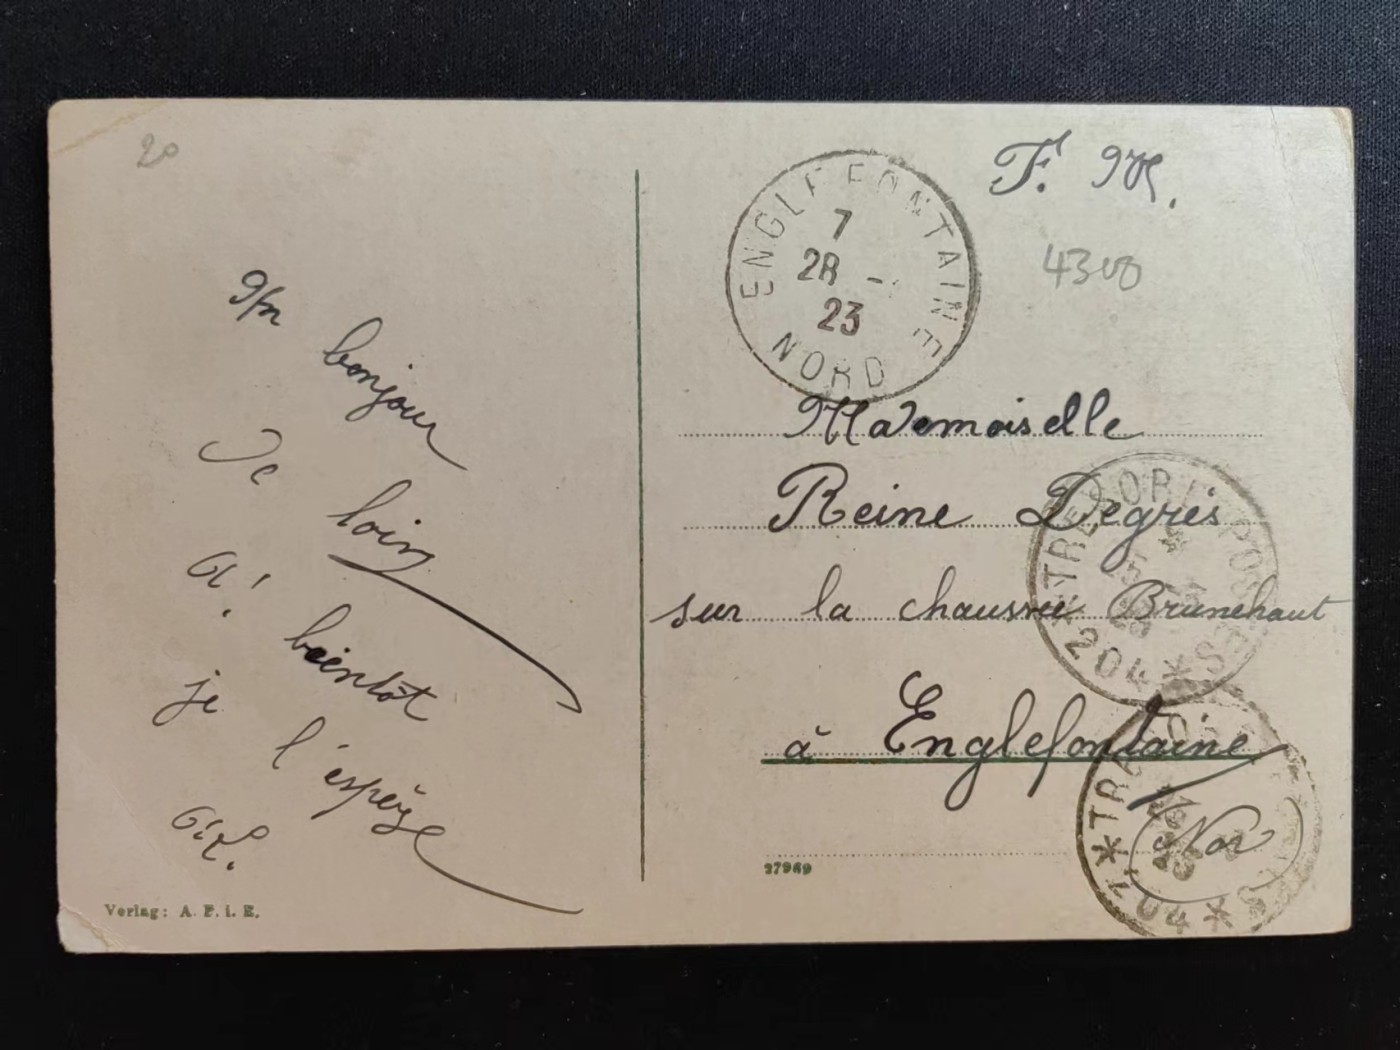 20
F. M.
4300
ENGLEFONTAINE
7
28 -
23
NORD
Un
bonjour
De
loin
A!
bientôt
je
l'espère
Mademoiselle
Reine Degrés
sur la chaussée Brunehaut
à Englefontaine
Nor
TRESOR ET POSTES
* 204 *
* TRESOR
204 *
27969
Verlag: A. F. i. E.